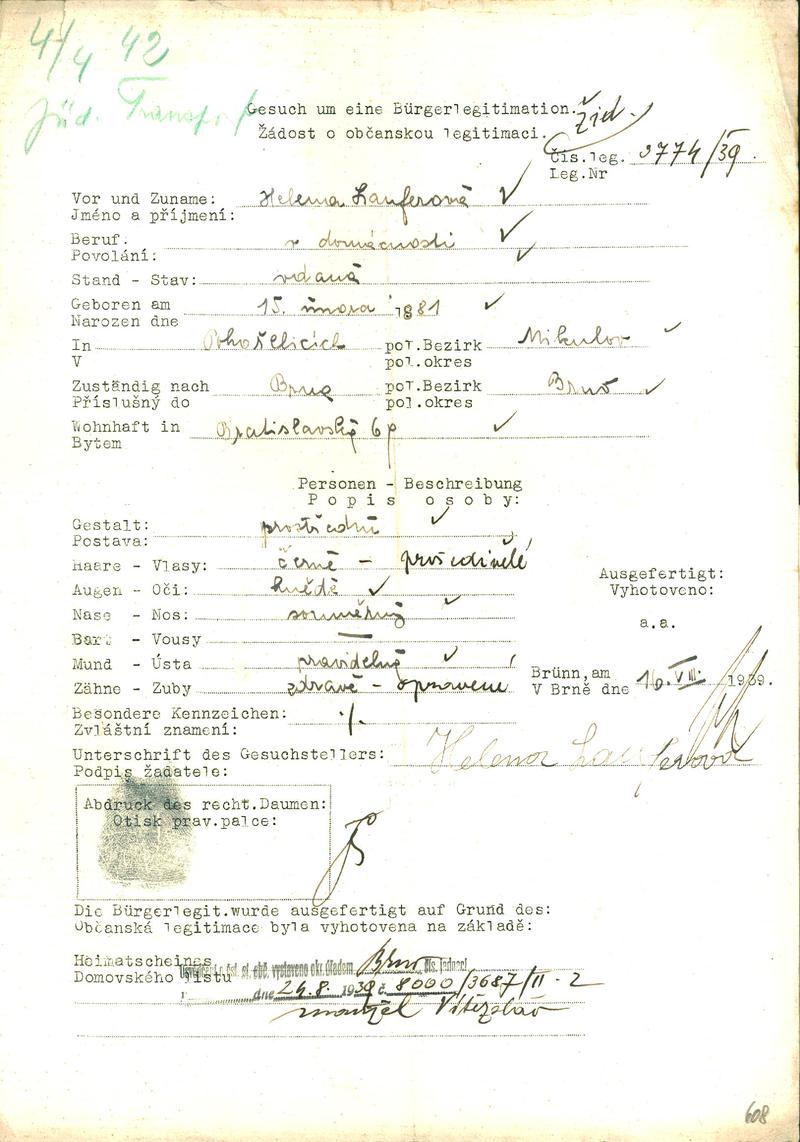 4/4 42
Jüd. Transport
Gesuch um eine Bürgerlegitimation.
Žádost o občanskou legitimaci.
Žid.
Čís.leg. 3774/39
Leg.Nr
Vor und Zuname: Helena Lauferová
Jméno a příjmení:
Beruf: v domácnosti
Povolání:
Stand - Stav: vdaná
Geboren am 15. února 1881
Narozen dne
In Pohořelicích pol.Bezirk Mikulov
V pol.okres
Zuständig nach Brna pol.Bezirk Brno
Příslušný do pol.okres
Wohnhaft in Bratislavská 6
Bytem
Personen - Beschreibung
Popis osoby:
Gestalt: prostřední
Postava:
Haare - Vlasy: černé - prošedivělé
Augen - Oči: hnědé
Nase - Nos: souměrný
Bart - Vousy —
Mund - Ústa pravidelná
Zähne - Zuby zdravé - opravené
Ausgefertigt:
Vyhotoveno:
a.a.
Brünn, am
V Brně dne 16. VIII. 1939.
Besondere Kennzeichen: ./.
Zvláštní znamení:
Unterschrift des Gesuchstellers: Helena Lauferová
Podpis žadatele:
Abdruck des recht.Daumen:
Otisk prav.palce:
Die Bürgerlegit.wurde ausgefertigt auf Grund des:
Občanská legitimace byla vyhotovena na základě:
Heimatscheines
Domovského listu
vystaveno okr. úřadem Brno
dne 24.8. 1939 č. 8000/3687/II-2
manžel Vítězslav
608